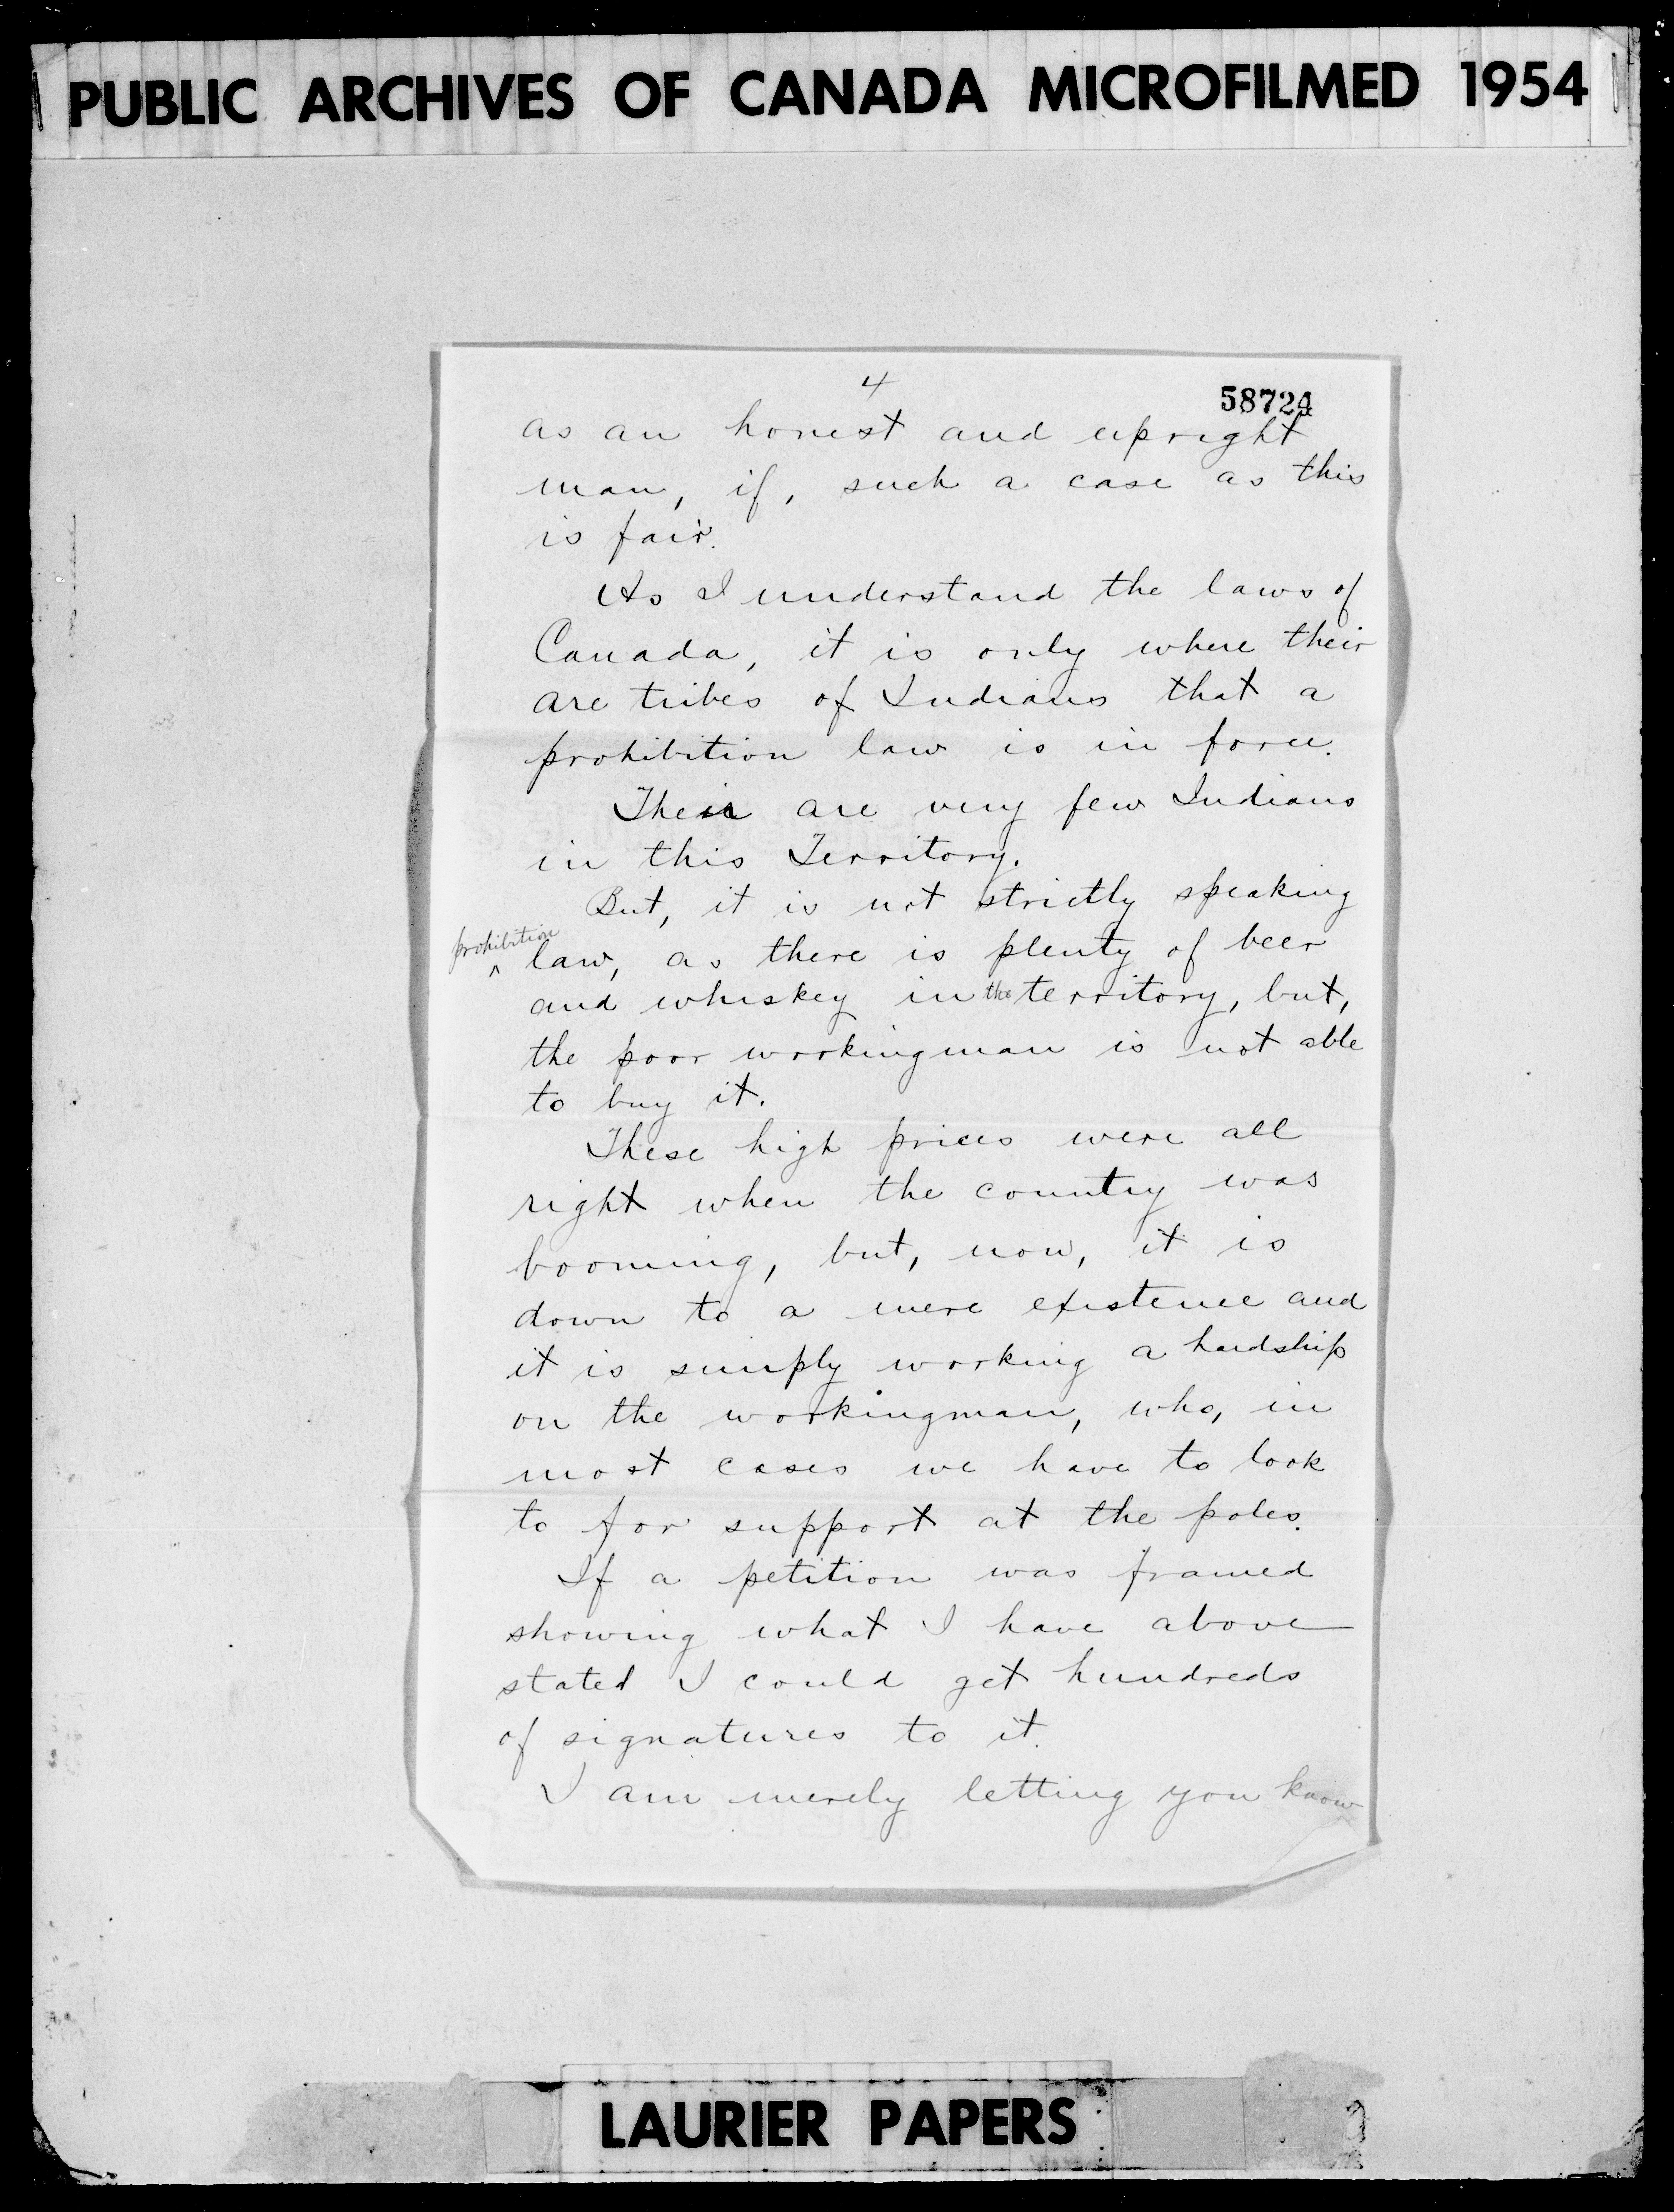 PUBLIC ARCHIVES OF CANADA MICROFILMED 1954
4
58724
as an honest and upright
man, if, such a case as this
is fair.
As I understand the laws of
Canada, it is only where their
are tribes of Indians that a
prohibition law is in force.
Their are very few Indians
in this Territory.
But, it is not strictly speaking
prohibition
^ law, as there is plenty of beer
and whiskey in the territory, but,
the poor workingman is not able
to buy it.
These high prices were all
right when the country was
booming, but, now, it is
down to a mere existence and
it is simply working a hardship
on the workingman, who, in
most cases we have to look
to for support at the poles.
If a petition was framed
showing what I have above
stated I could get hundreds
of signatures to it.
I am merely letting you know
LAURIER PAPERS